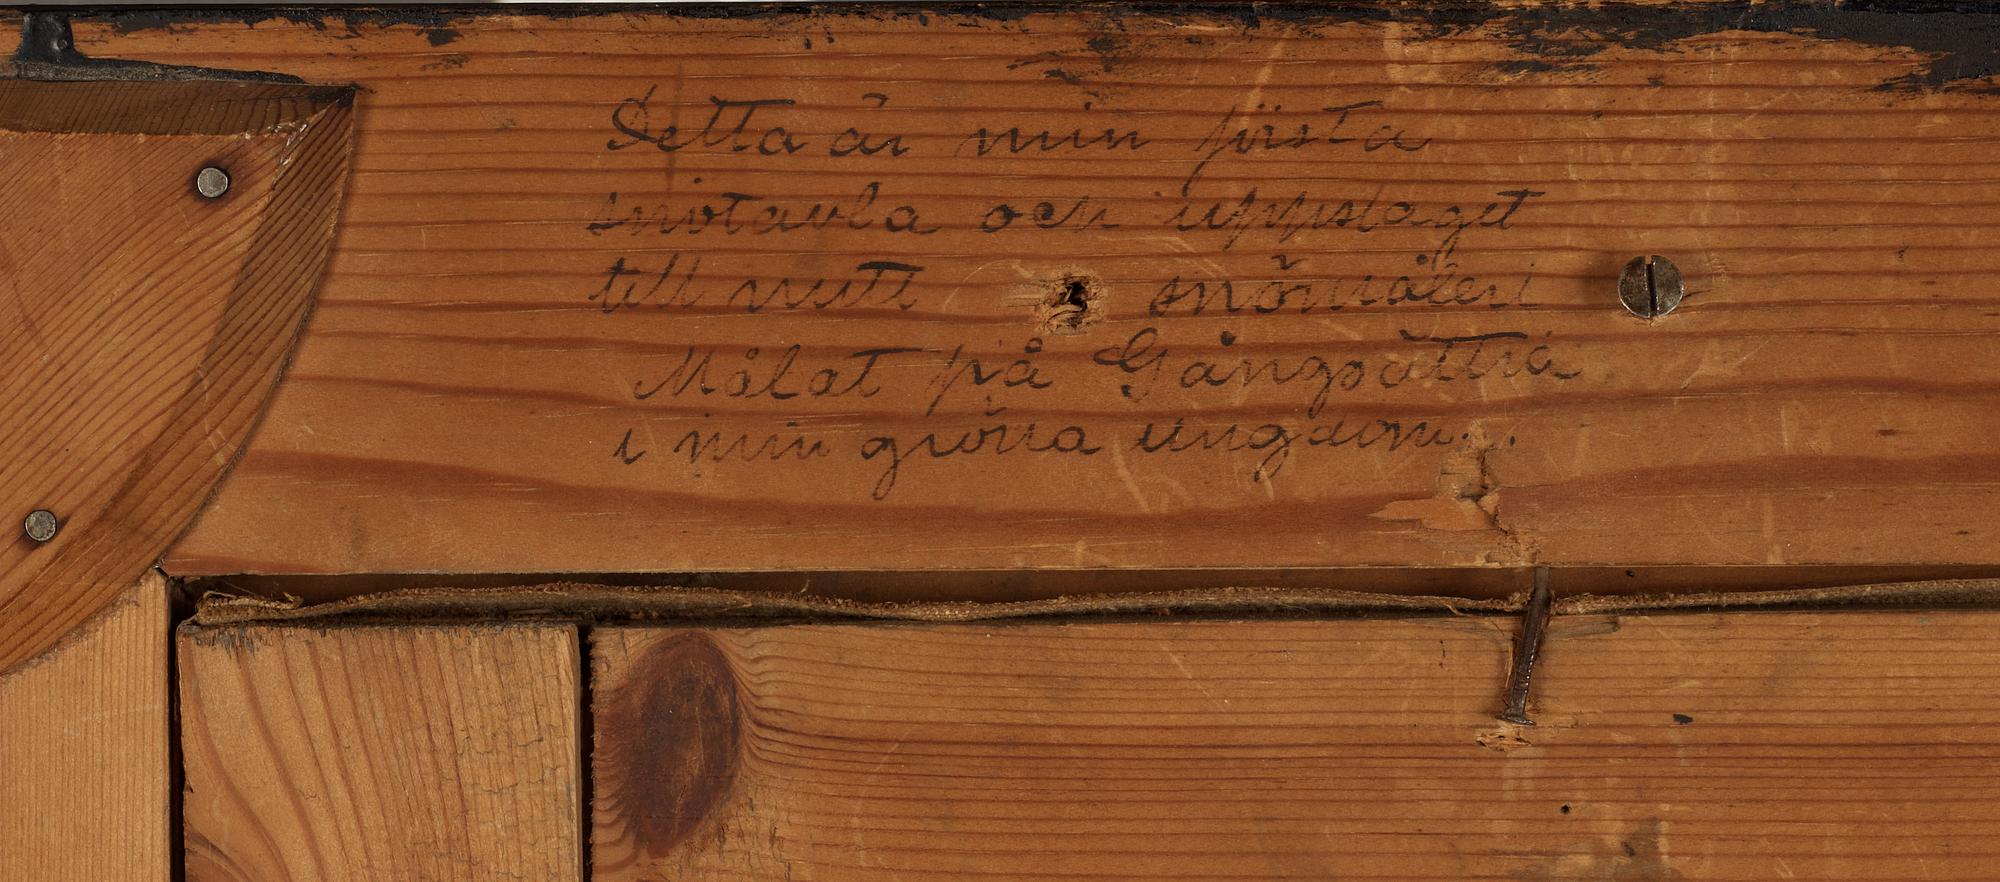 Detta är min första
snötavla och uppslaget
till mitt snömåleri
Målat på Gångsätra
i min gröna ungdom...